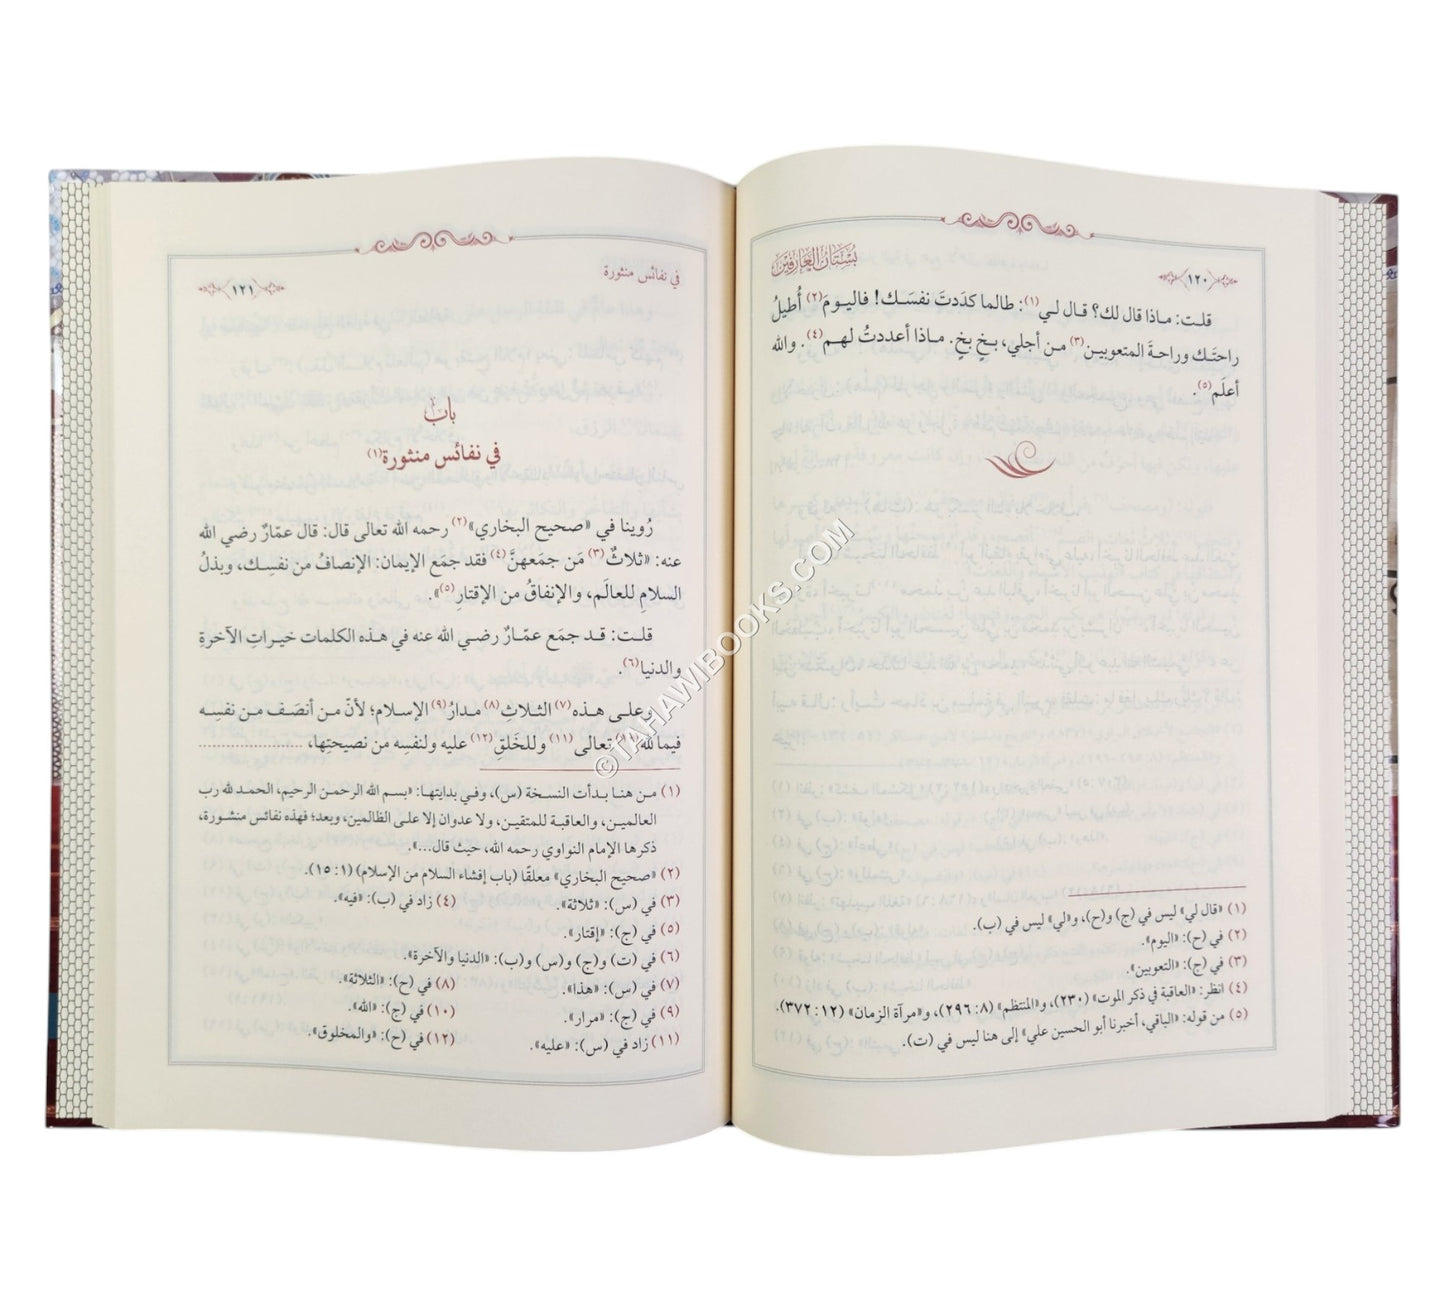 بستان العارفين
١٢٠
قلت: ماذا قال لك؟ قال لي(١): طالما كدَدتَ نفسَك! فاليومَ(٢) أُطيلُ
راحتَك وراحةَ المتعوبين(٣) من أجلي، بخٍ بخٍ. ماذا أعددتُ لهم(٤). والله
أعلَم(٥).
(١) «قال لي» ليس في (ج) و(ح)، و«لي» ليس في (ب).
(٢) في (ح): «اليوم».
(٣) في (ج): «التعوبين».
(٤) انظر: «العاقبة في ذكر الموت» (٢٣٠)، و«المنتظم» (٨: ٢٩٦)، و«مرآة الزمان» (١٢: ٣٧٢).
(٥) من قوله: «الباقي، أخبرنا أبو الحسين علي» إلى هنا ليس في (ت).
في نفائس منثورة
١٢١
بابٌ
في نفائس منثورة(١)
رُوينا في «صحيح البخاري»(٢) رحمه الله تعالى قال: قال عمّارٌ رضي الله
عنه: «ثلاثٌ(٣) مَن جمَعهنَّ(٤) فقد جمَع الإيمان: الإنصافُ من نفسِك، وبذلُ
السلامِ للعالَم، والإنفاقُ من الإقتارِ(٥)».
قلت: قد جمَع عمّارٌ رضي الله عنه في هذه الكلمات خيراتِ الآخرةِ
والدنيا(٦).
وعلى هذه(٧) الثلاثِ(٨) مدارُ(٩) الإسلام؛ لأنّ من أنصَف من نفسِه
فيما لله(١٠) تعالى(١١) وللخَلقِ(١٢) عليه ولنفسِه من نصيحتِها،
(١) من هنا بدأت النسخة (س)، وفي بدايتها: «بسم الله الرحمن الرحيم، الحمد لله رب
العالمين، والعاقبة للمتقين، ولا عدوان إلا على الظالمين، وبعد؛ فهذه نفائس منشورة،
ذكرها الإمام النواوي رحمه الله، حيث قال...».
(٢) «صحيح البخاري» معلقًا (باب إفشاء السلام من الإسلام) (١: ١٥).
(٣) في (س): «ثلاثة». (٤) زاد في (ب): «فيه».
(٥) في (ج): «إقتار».
(٦) في (ت) و(ج) و(س) و(ب): «الدنيا والآخرة».
(٧) في (س): «هذا». (٨) في (ح): «الثلاثة».
(٩) في (ج): «مرار». (١٠) في (ج): «الله».
(١١) زاد في (س): «عليه». (١٢) في (ح): «والمخلوق».
©TAHAWIBOOKS.COM